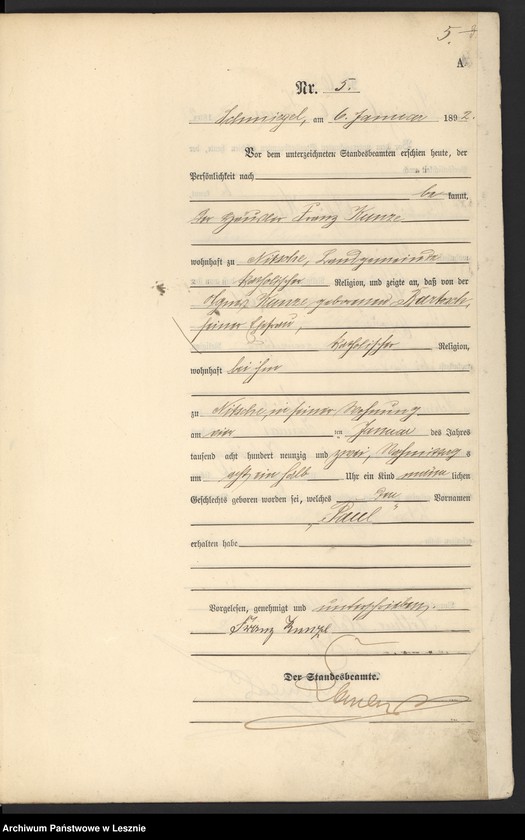 5.
A
Nr. 5.
Schmiegel, am 6. Januar 1892.
Vor dem unterzeichneten Standesbeamten erschien heute, der
Persönlichkeit nach
be kannt,
der Häusler Franz Kunze
wohnhaft zu Nitsche, Landgemeinde
katholischer Religion, und zeigte an, daß von der
Agnes Kunze geborenen
seiner Ehefrau,
katholischer Religion,
wohnhaft bei ihm
zu Nitsche, in seiner Wohnung
am vier ten Januar des Jahres
tausend acht hundert neunzig und zwei, Vormittag s
um acht ein halb Uhr ein Kind männ lichen
Geschlechts geboren worden sei, welches den Vornamen
„Paul“
erhalten habe
Vorgelesen, genehmigt und unterschrieben.
Franz Kunze
Der Standesbeamte.
Archiwum Państwowe w Lesznie